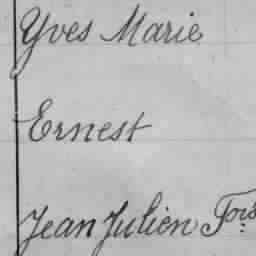 Yves Marie
Ernest
Jean Julien Fois